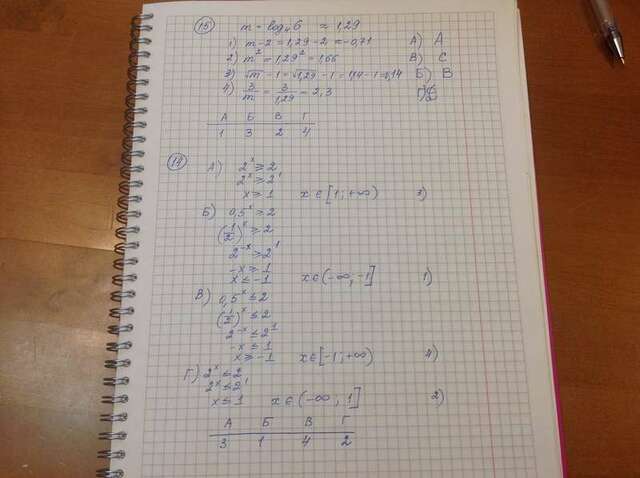 15 m = log₄6 ≈ 1,29
1) m-2 = 1,29-2 = -0,71 А) А
2) m² = 1,29² = 1,66 В) С
3) √m - 1 = √1,29 - 1 = 1,14-1 = 0,14 Б) В
4) 3/m = 3/1,29 = 2,3
А Б В Г
1 3 2 4
14 А) 2ˣ ≥ 2
2ˣ ≥ 2¹
x ≥ 1 x ∈ [1; +∞) 3)
Б) 0,5ˣ ≥ 2
(1/2)ˣ ≥ 2
2⁻ˣ ≥ 2¹
-x ≥ 1
x ≤ -1 x ∈ (-∞, -1] 1)
В) 0,5ˣ ≤ 2
(1/2)ˣ ≤ 2
2⁻ˣ ≤ 2¹
-x ≤ 1
x ≥ -1 x ∈ [-1; +∞) 4)
Г) 2ˣ ≤ 2
2ˣ ≤ 2¹
x ≤ 1 x ∈ (-∞; 1] 2)
А Б В Г
3 1 4 2